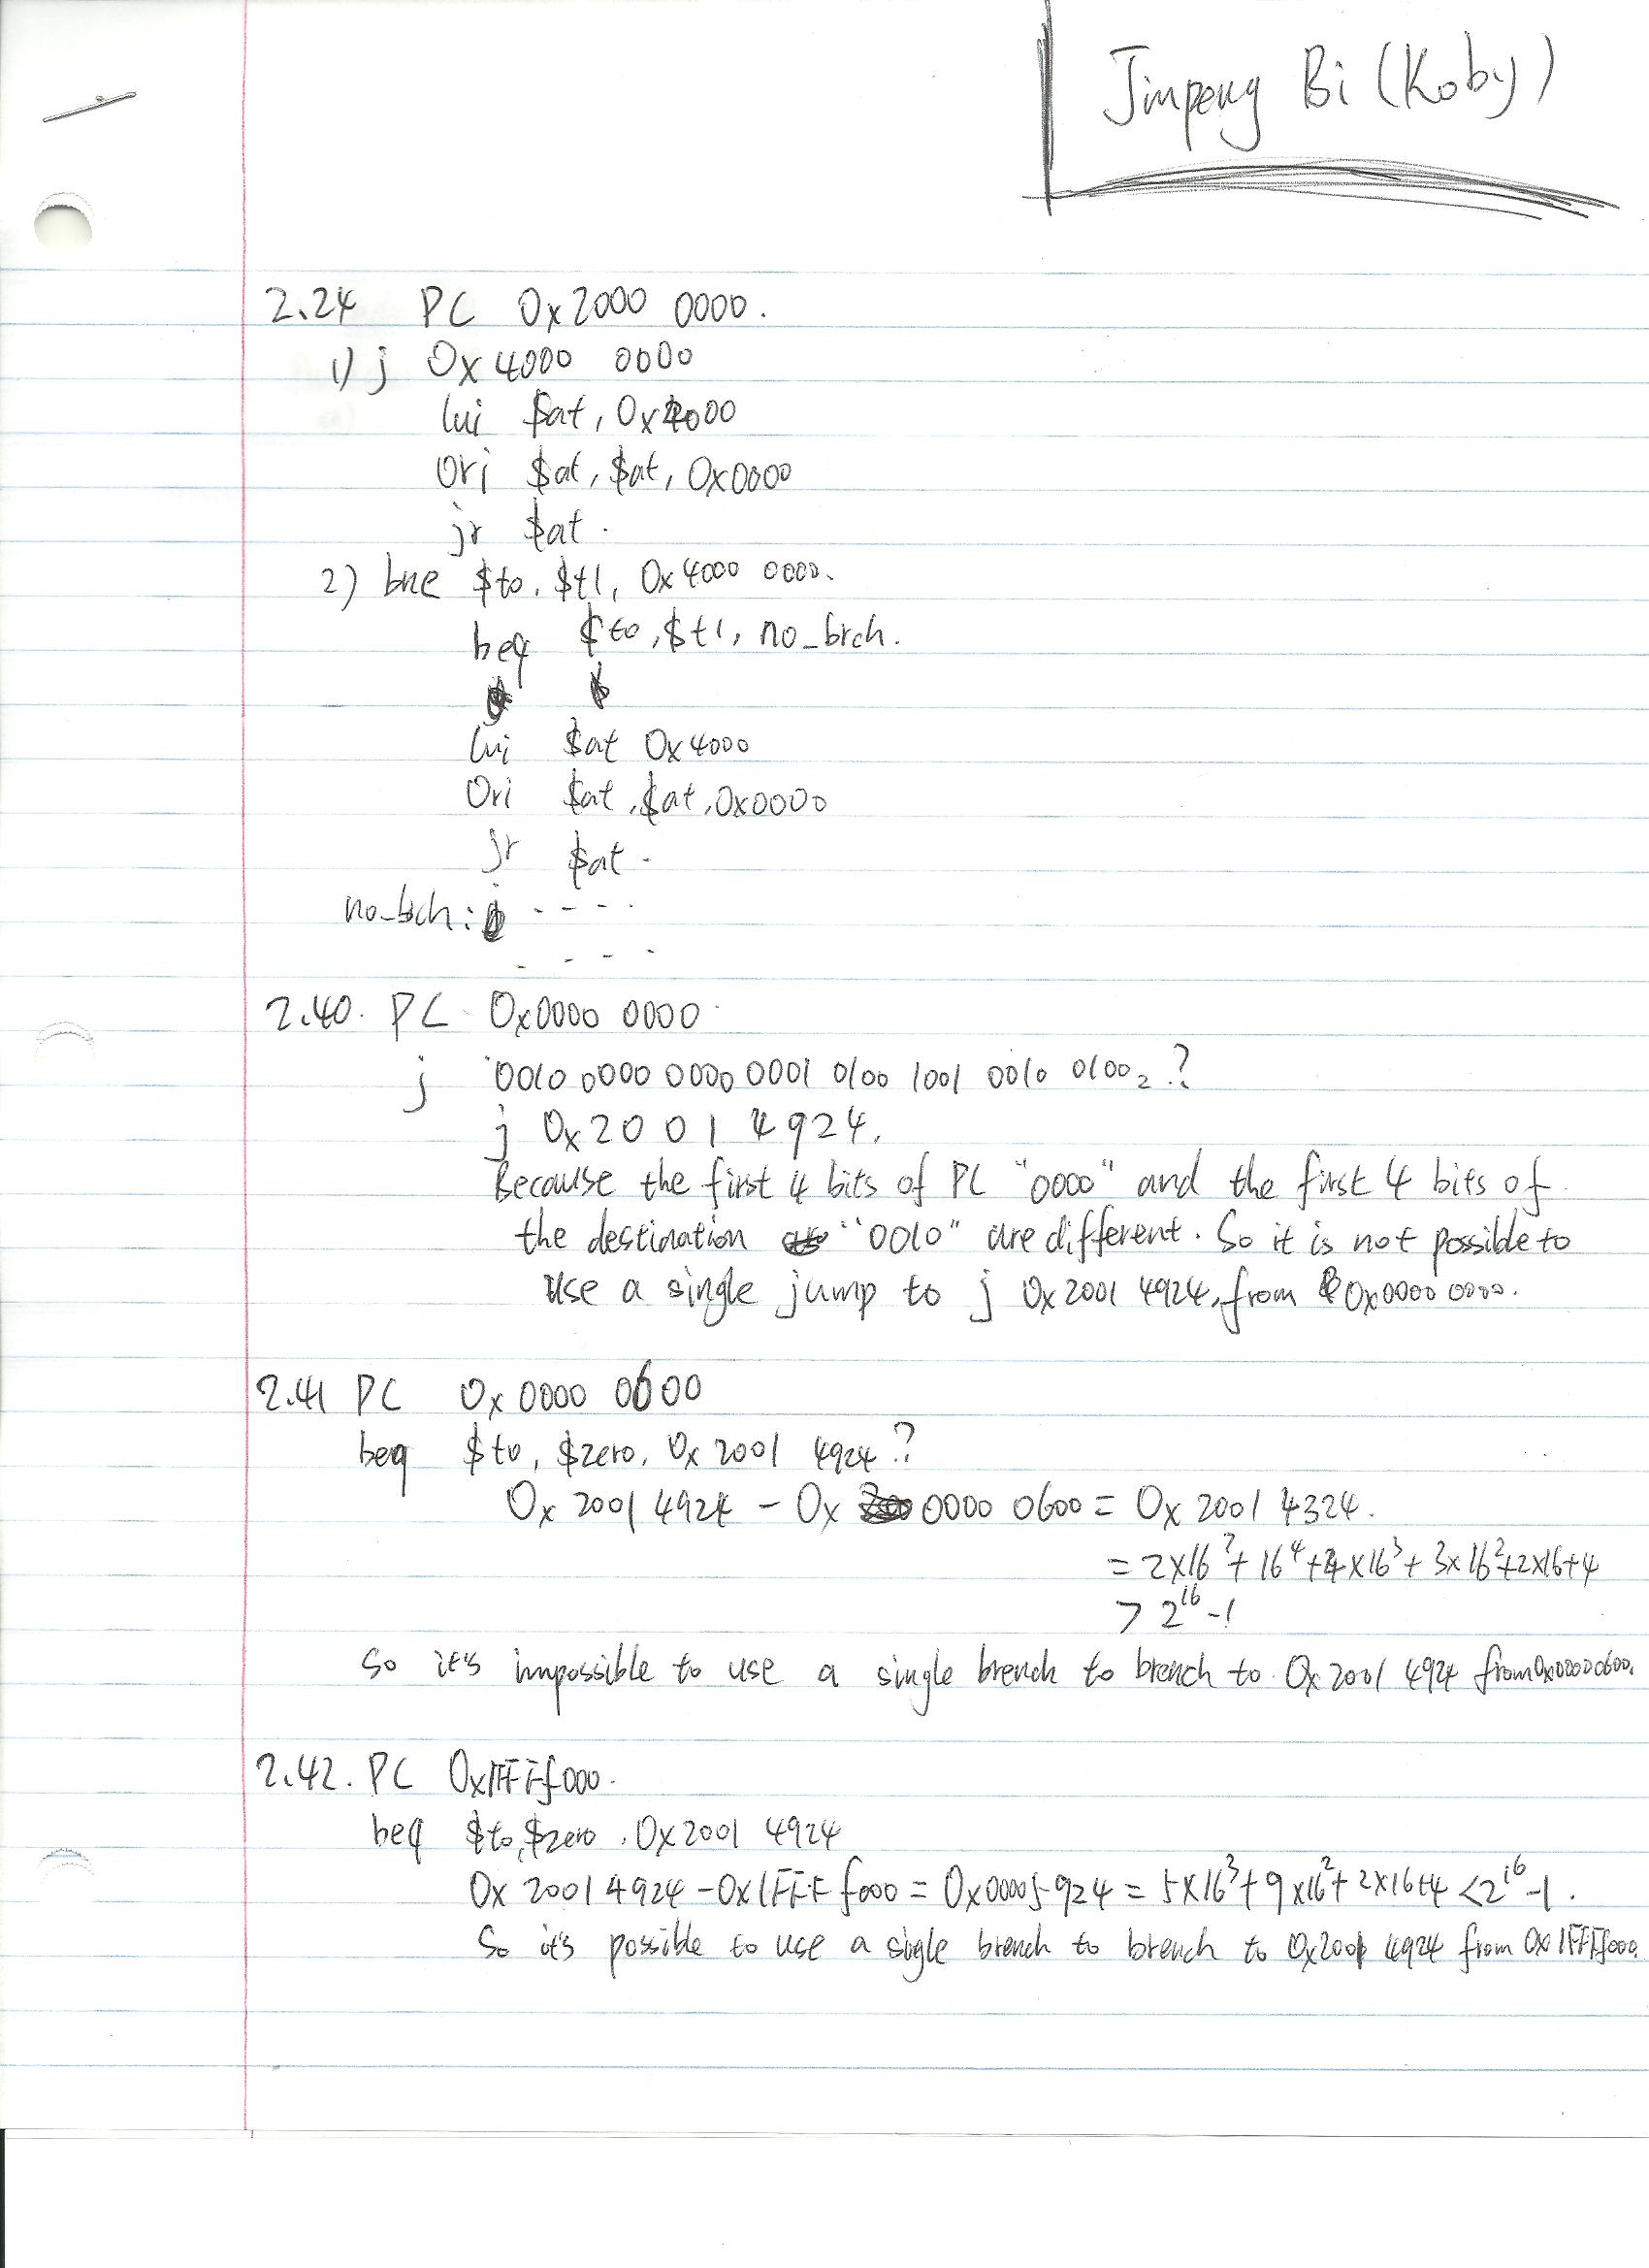 Jinpeng Bi (Koby)
2.24 PC 0x2000 0000.
1) j 0x4000 0000
lui $at, 0x4000
ori $at, $at, 0x0000
jr $at.
2) bne $t0, $t1, 0x4000 0000.
beq $t0, $t1, no_brch.
lui $at 0x4000
Ori $at, $at, 0x0000
jr $at.
no_bch: - - - -
- - - -
2.40. PC 0x0000 0000
j 0010 0000 0000 0001 0100 1001 0010 0100₂ ?
j 0x2001 4924.
Because the first 4 bits of PC "0000" and the first 4 bits of
the destination "0010" are different. So it is not possible to
use a single jump to j 0x2001 4924, from 0x0000 0000.
2.41 PC 0x0000 0600
beq $t0, $zero, 0x2001 4924 ?
0x2001 4924 - 0x 0000 0600 = 0x2001 4324.
= 2×16⁷ + 16⁴ + 4×16³ + 3×16² + 2×16 + 4
> 2¹⁶ - 1
So it's impossible to use a single brench to brench to 0x2001 4924 from 0x0000 0600.
2.42. PC 0x1FFFf000.
beq $t0, $zero, 0x2001 4924
0x2001 4924 - 0x1FFF f000 = 0x00005924 = 5×16³ + 9×16² + 2×16+4 < 2¹⁶-1.
So it's possible to use a sigle brench to brench to 0x2001 4924 from 0x1FFFf000.